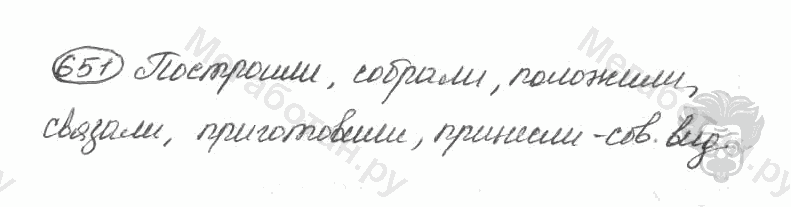 651 Построили, собрали, положили,
связали, приготовили, принесли - сов. вид.
Мегаботан.ру
Мегаботан.ру